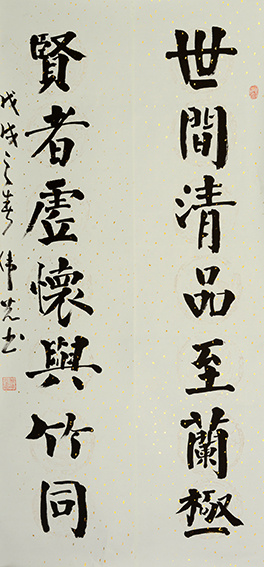 世間清品至蘭極
賢者虛懷與竹同
戊戌之春偉光书